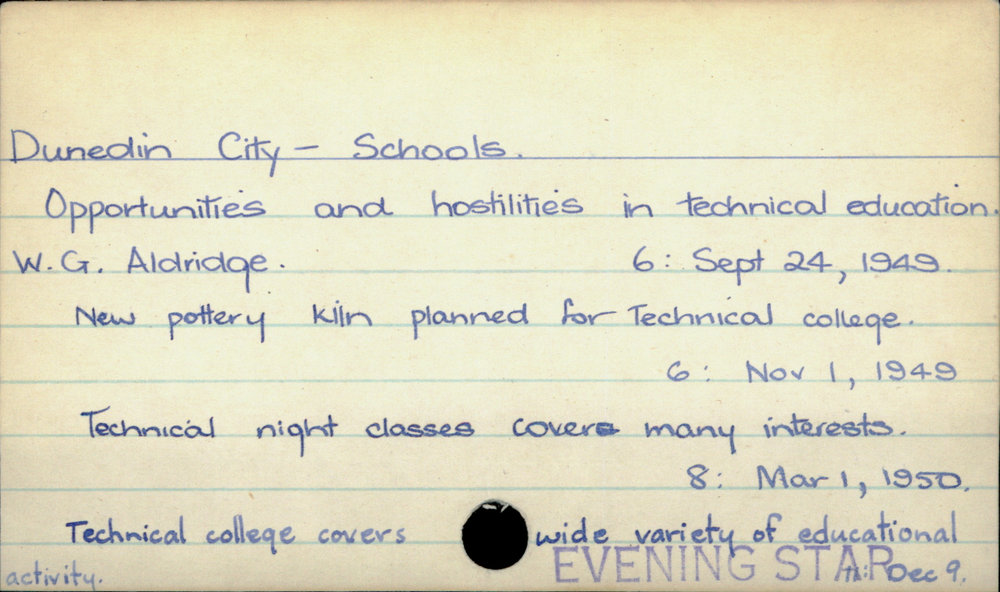 Dunedin City - Schools.
Opportunities and hostilities in technical education.
W. G. Aldridge. 6: Sept 24, 1949.
New pottery kiln planned for Technical college.
6: Nov 1, 1949
Technical night classes cover many interests.
8: Mar 1, 1950.
Technical college covers wide variety of educational
activity. EVENING STAR Dec 9.